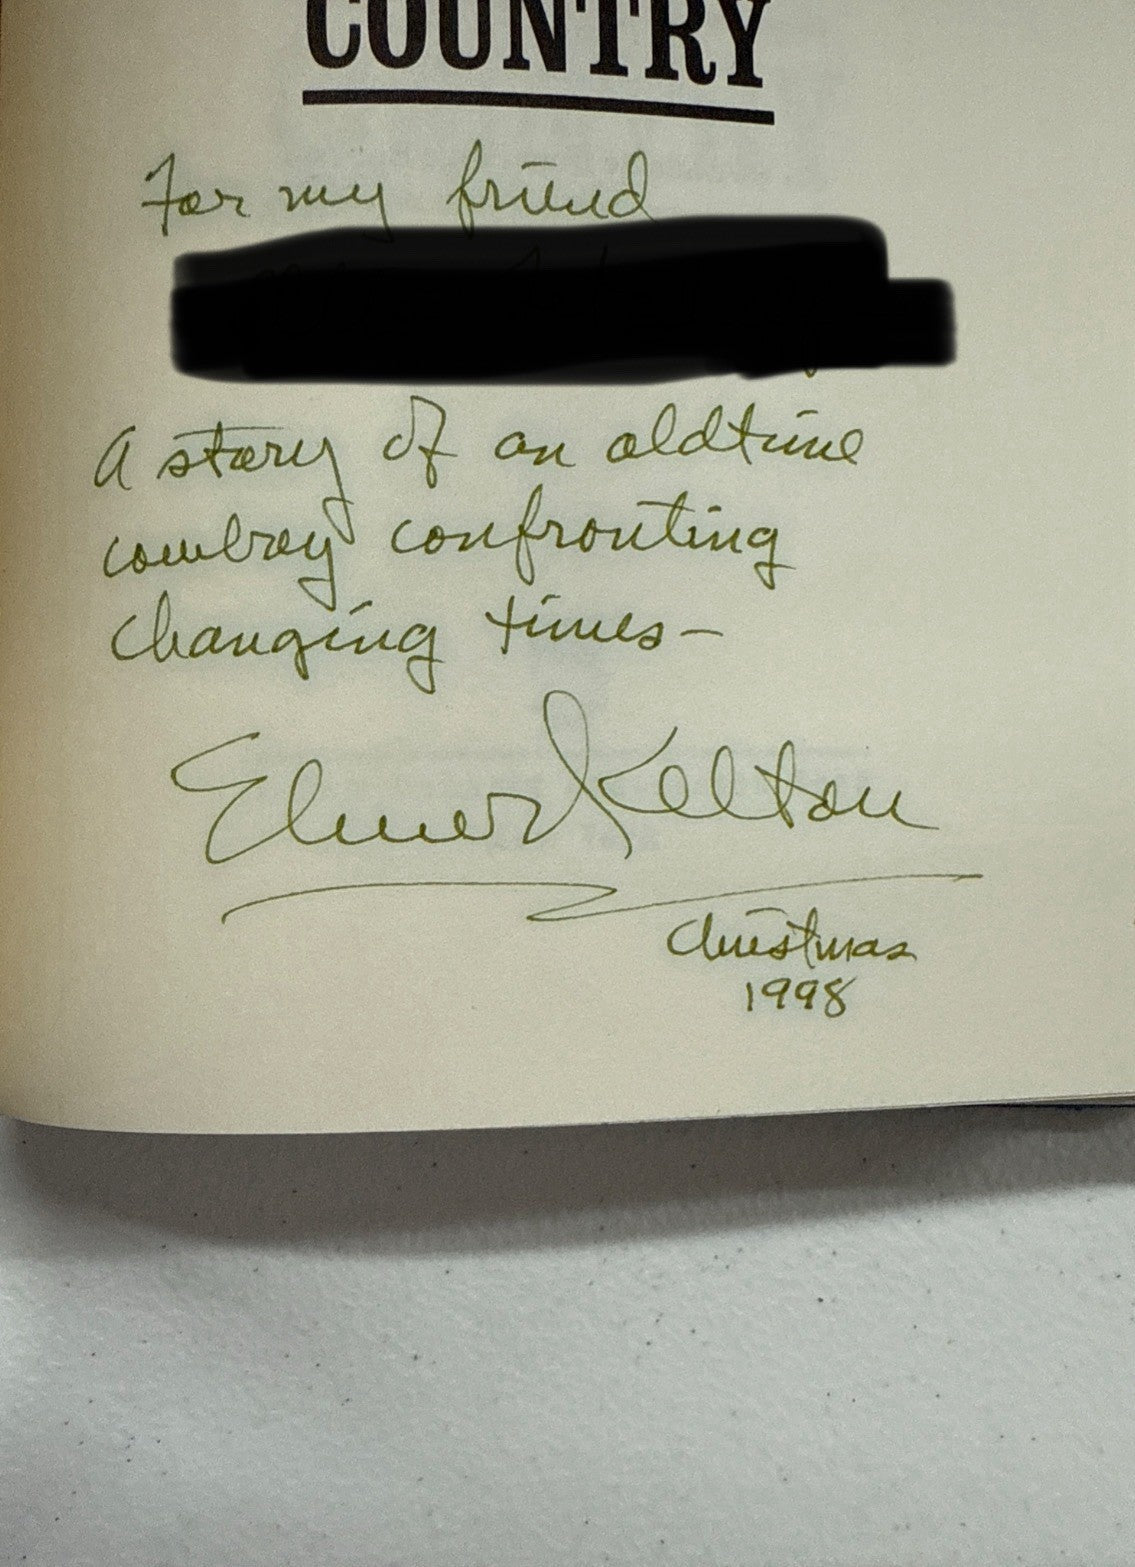 COUNTRY
For my friend
A story of an oldtime
cowboy confronting
changing times—
Elmer Kelton
Christmas
1998